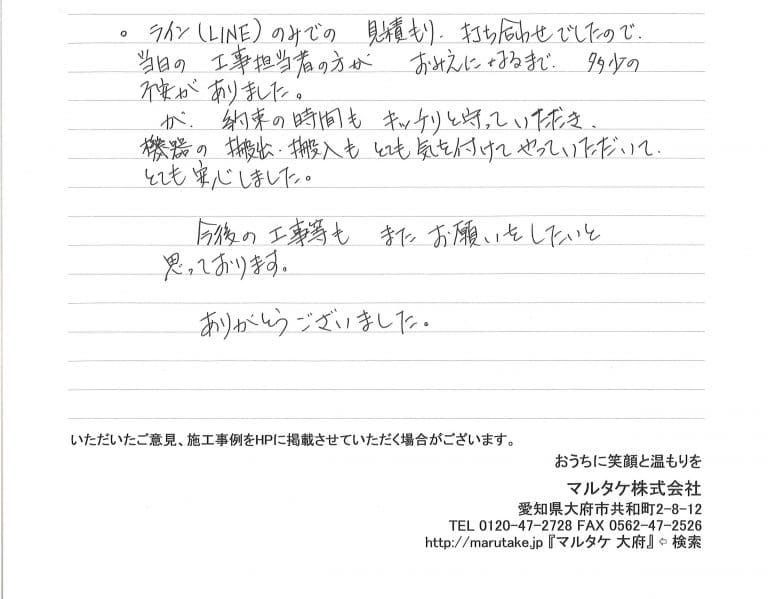 。ライン(LINE)のみでの 見積もり、打ち合わせでしたので、
当日の 工事担当者の方が おみえになるまで、多少の
不安が ありました。
が、約束の時間も キッチリと守っていただき、
機器の 搬出・搬入も とても気を付けてやっていただいて、
とても安心しました。
今後の工事等も また お願いをしたいと
思っております。
ありがとうございました。
いただいたご意見、施工事例をHPに掲載させていただく場合がございます。
おうちに笑顔と温もりを
マルタケ株式会社
愛知県大府市共和町2-8-12
TEL 0120-47-2728 FAX 0562-47-2526
http://marutake.jp『マルタケ 大府』⇦ 検索